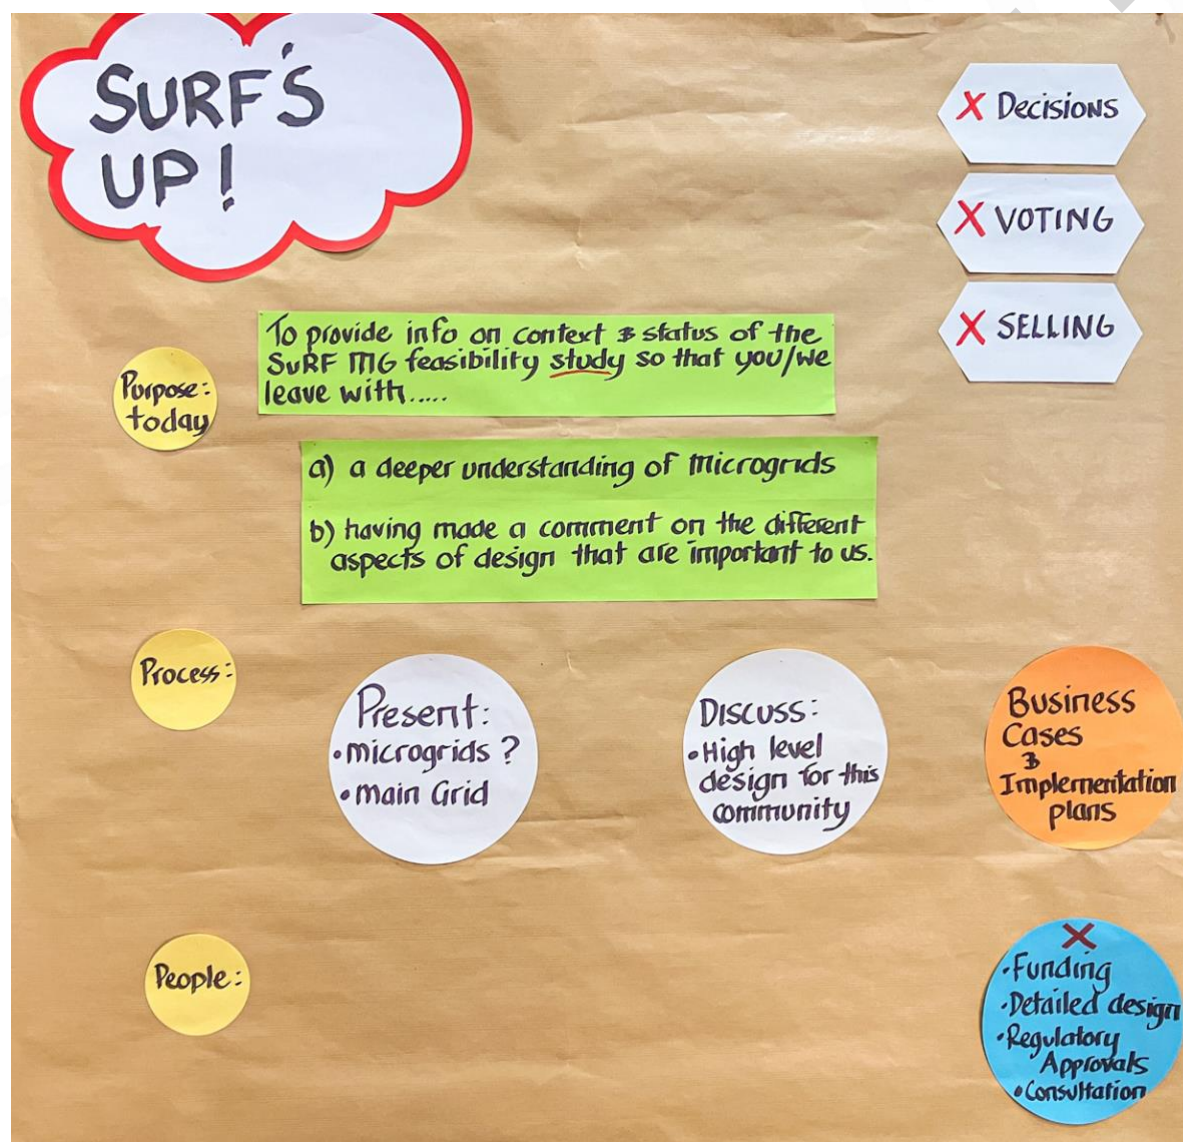 SURF'S
UP!
X Decisions
X VOTING
X SELLING
Purpose:
today
To provide info on context & status of the
SuRF MG feasibility study so that you/we
leave with.....
a) a deeper understanding of microgrids
b) having made a comment on the different
aspects of design that are important to us.
Process:
Present:
• microgrids ?
• main Grid
Discuss:
• High level
design for this
community
Business
Cases
&
Implementation
plans
People:
X
• Funding
• Detailed design
• Regulatory
Approvals
• Consultation